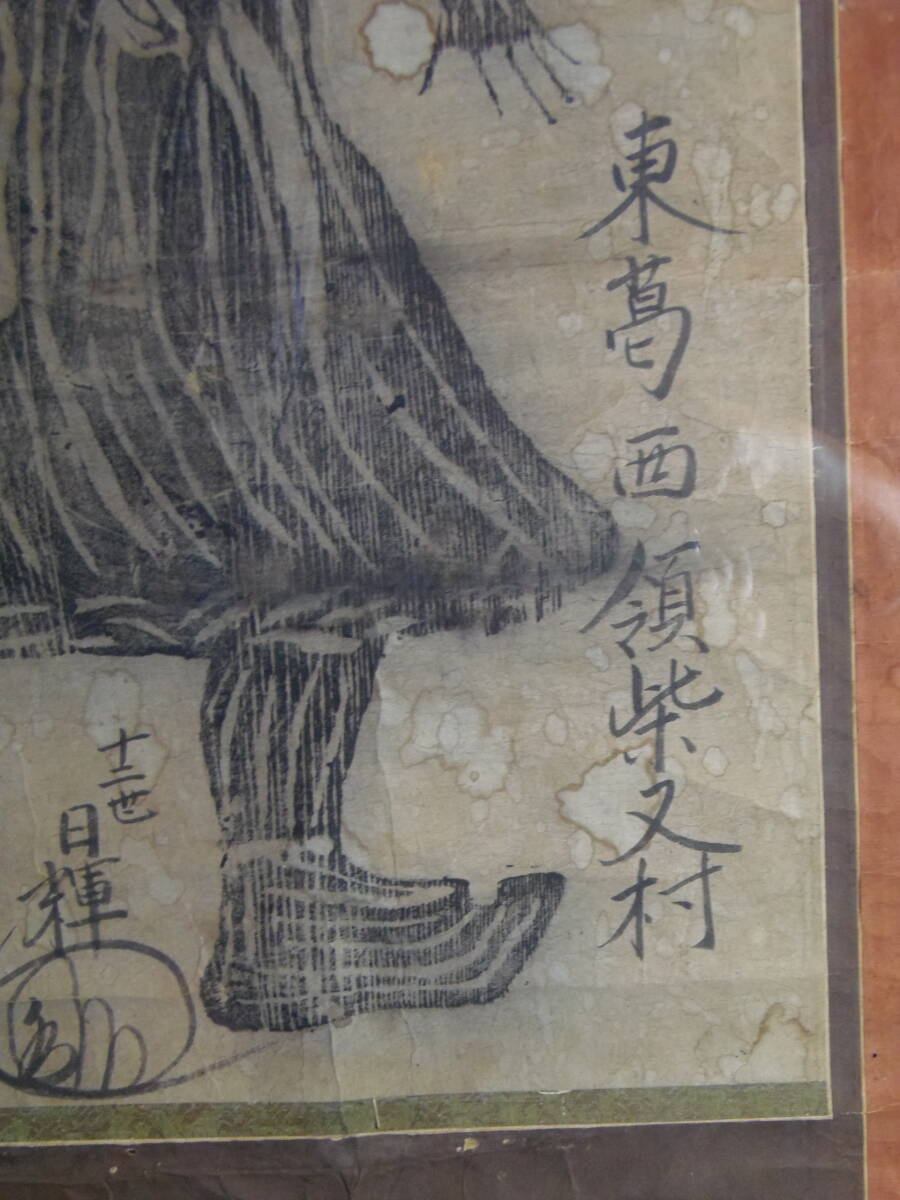 東葛西領柴又村
十二世
日輝